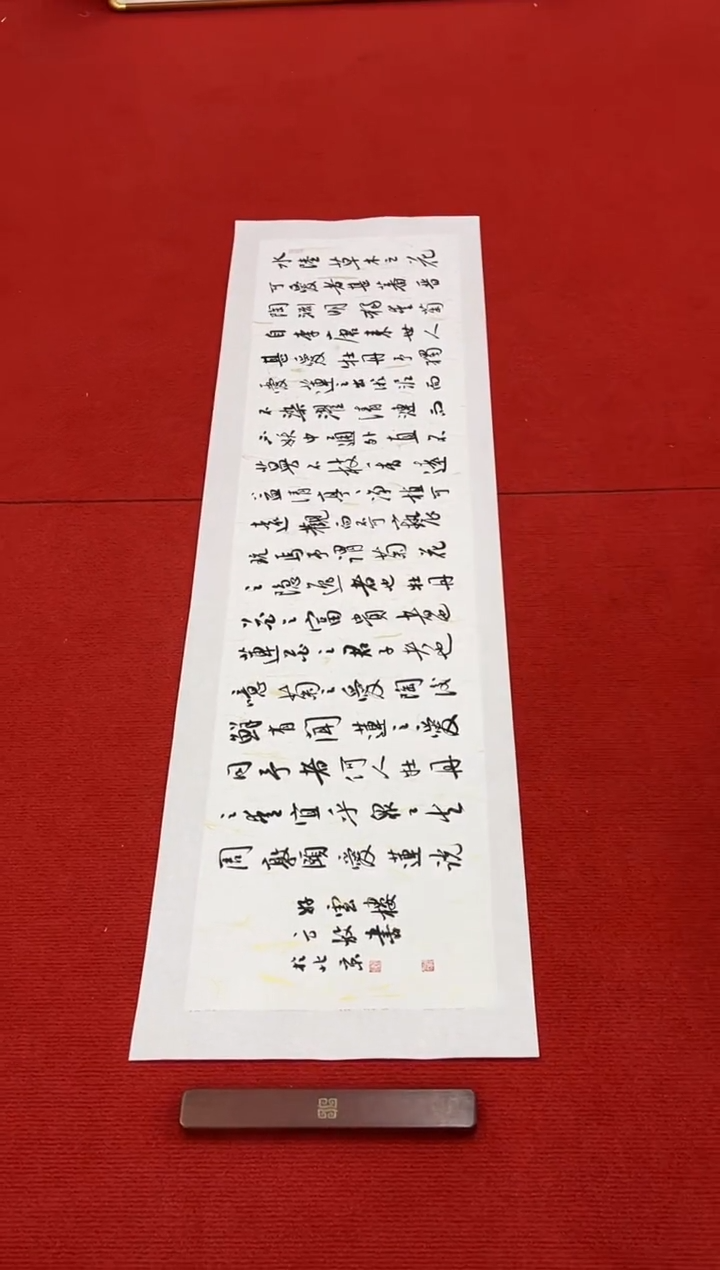 水陸草木之花
可愛者甚蕃晋
陶淵明獨愛菊
自李唐来世人
甚愛牡丹予獨
愛蓮之出淤泥而
不染濯清漣而
不妖中通外直不
蔓不枝香遠
益清亭々净植可
遠觀而不可褻
玩焉予謂菊花
之隐逸者也牡丹
花之富貴者也
蓮花之君子者也
噫菊之愛陶後
鮮有聞蓮之愛
同予者何人牡丹
之愛宜乎衆矣
周敦頤愛蓮説
雲樓
書
於北京